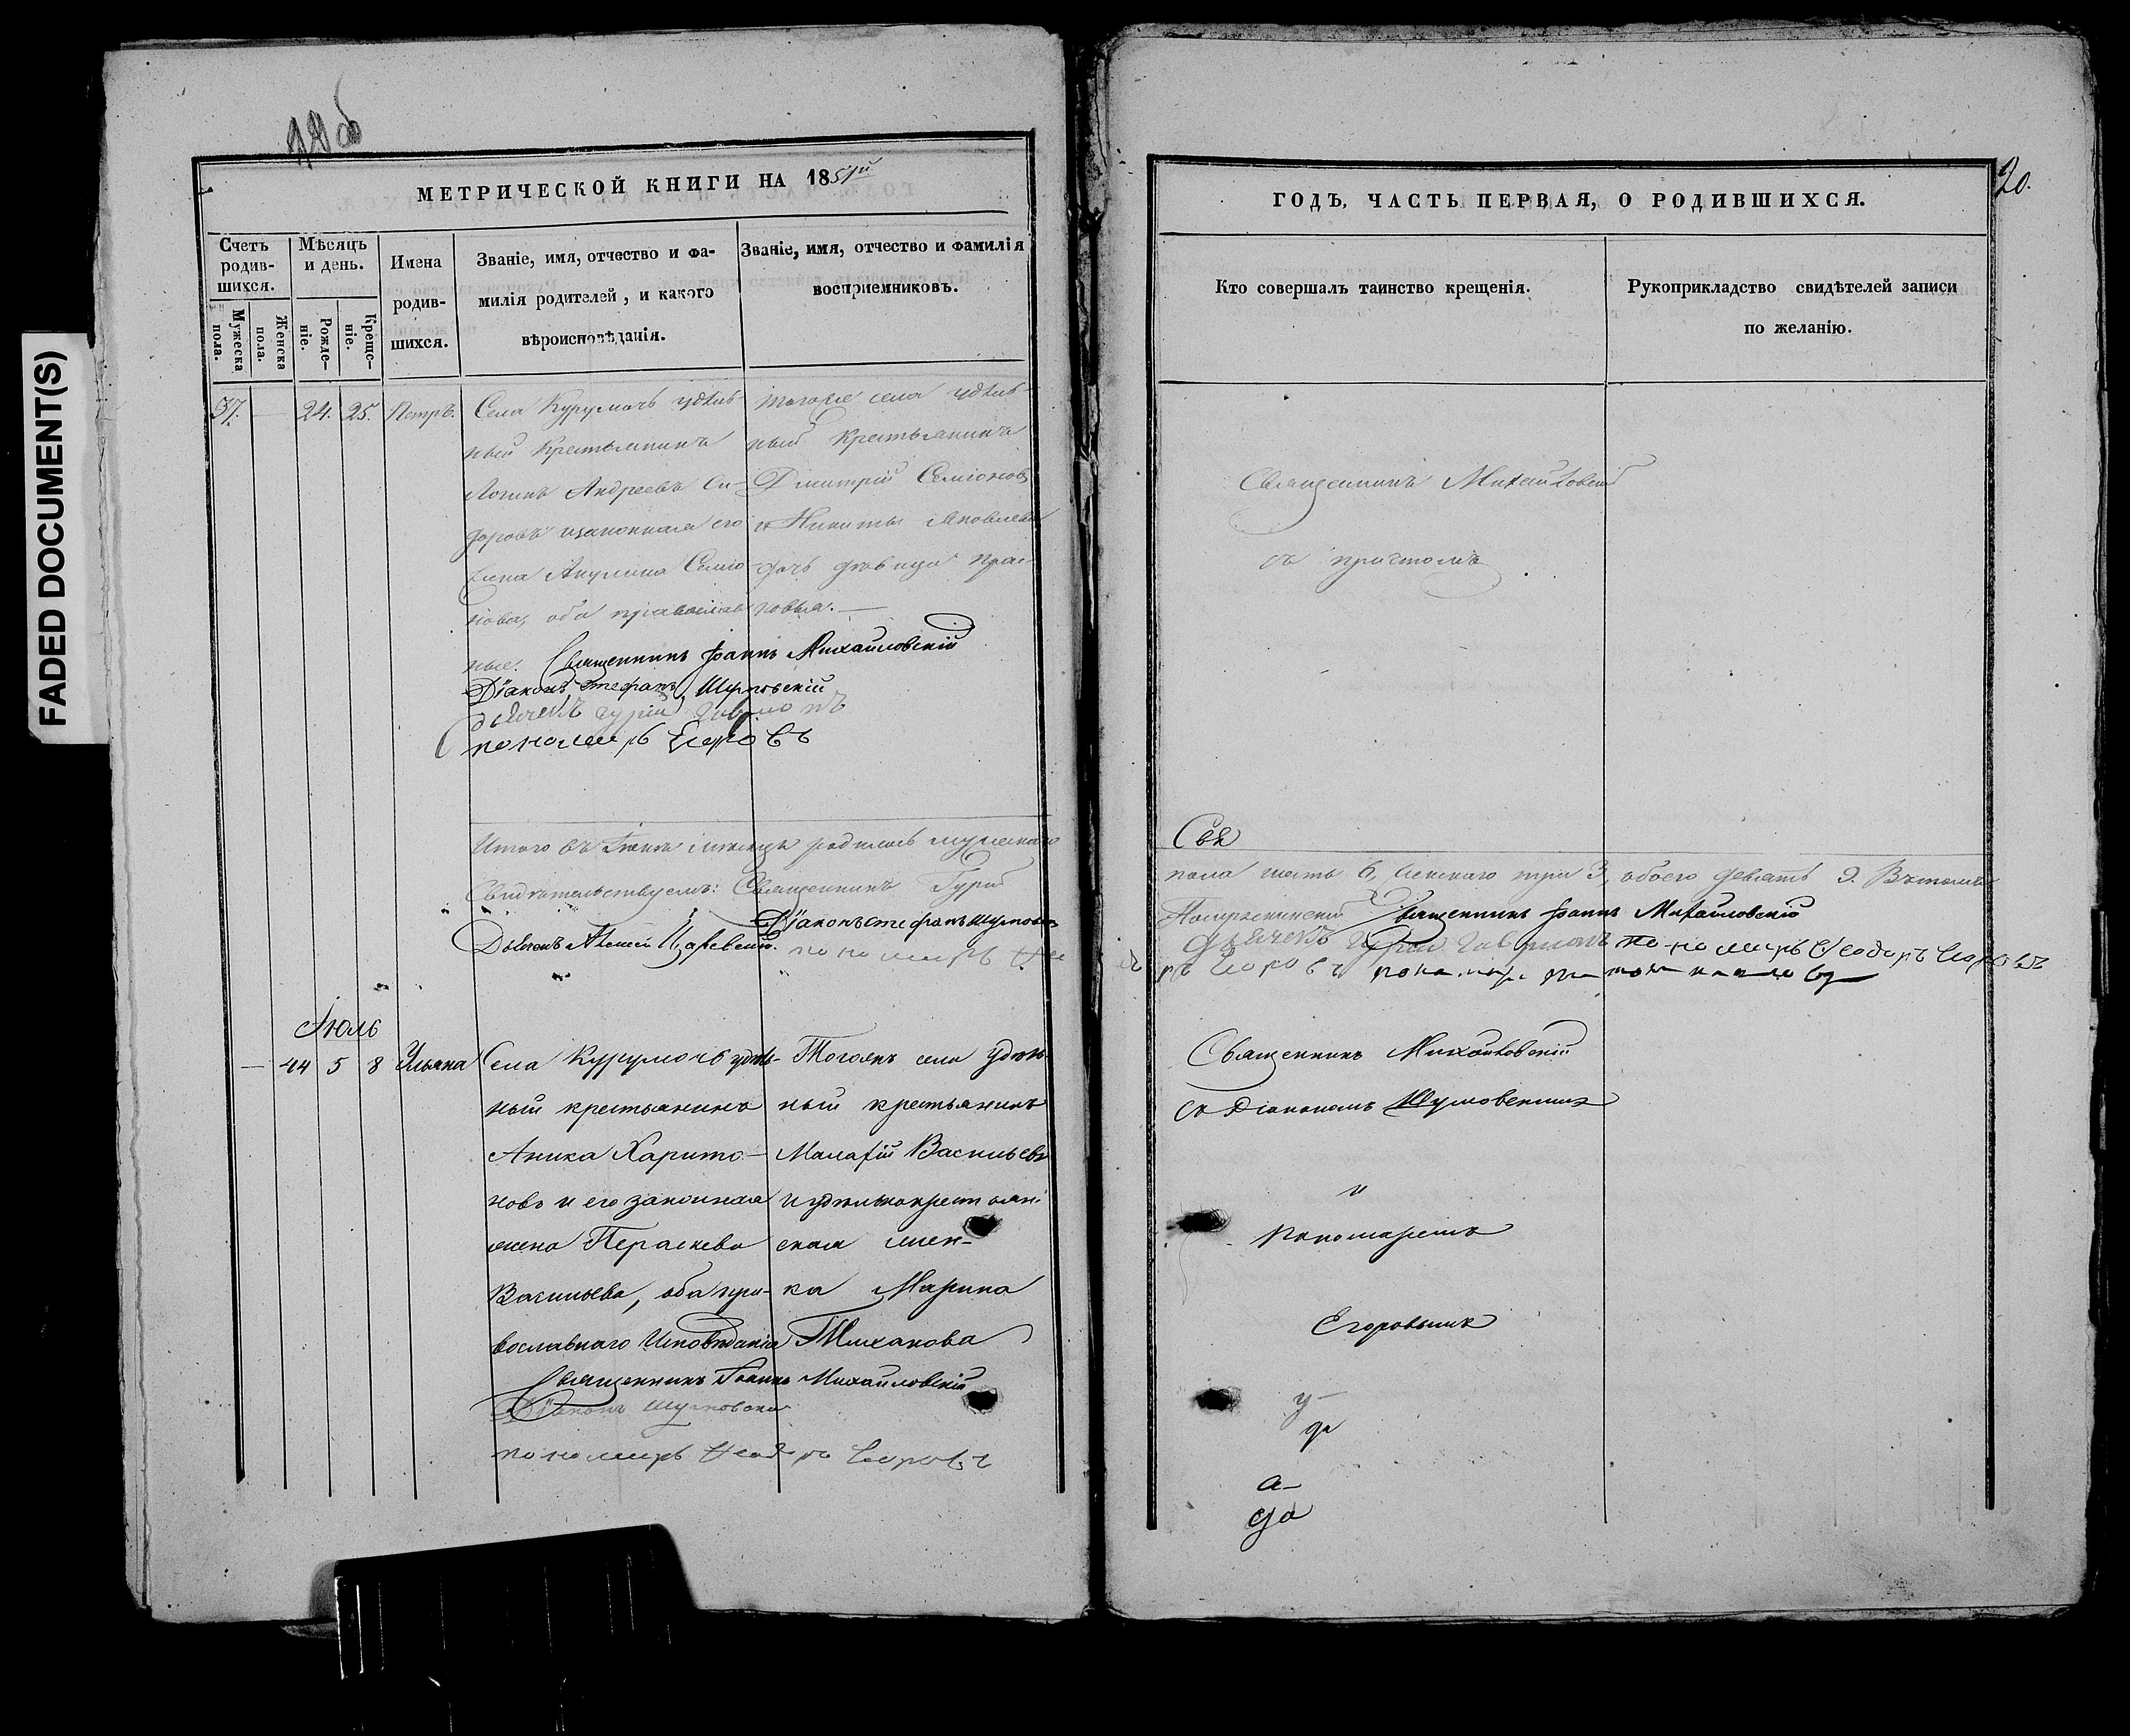 FADED DOCUMENT(S)
МЕТРИЧЕСКОЙ КНИГИ НА 1851й
Счетъ родив-шихся.
Мѣсяцъ и день.
Имена родив-шихся.
Званіе, имя, отчество и фа-
милія родителей, и какого
вѣроисповѣданія.
Званіе, имя, отчество и фамилія
воспріемниковъ.
Мужеска пола.
Женска пола.
Рожде-ніе.
Креще-ніе.
37. — 24. 25. Петръ.
Села Курумочь удѣль-
ный крестьянинъ
Логинъ Андреевъ Си-
доровъ и законная его
жена Акулина Семіо-
нова, оба православ
ные.
тогоже села удѣль-
ный крестьянинъ
Дмитрій Семіоновъ
и Никиты Яковлева
дочь дѣвица Прас-
ковья. —
Священникъ Іоаннъ Михайловскій
Діаконъ Стефанъ Шумовскій
дьячекъ Гурій
пономарь Егоровъ
Итого въ Іюнѣ мѣсяцѣ родилось мужескаго
Свидѣтельствуемъ: Священникъ Гурій
Діаконъ Стефанъ Шумовск
Дьячекъ Алексѣй Царевскій.
пономарь
Іюль
— 44 5 8 Ульяна
Села Курумочь удѣль-
ный крестьянинъ
Аника Харито-
новъ и его законная
жена Пераскева
Васильева, оба пра-
вославнаго исповѣданія
Тогожъ села удѣль
ный крестьянинъ
Малафій Васильевъ
и удѣльнокрестьян
ская жен-
ка Марина
Священникъ Іоаннъ Михайловскій
Діаконъ Шумовскій
пономарь Ѳеодоръ Егоровъ
20.
ГОДЪ, ЧАСТЬ ПЕРВАЯ, О РОДИВШИХСЯ.
Кто совершалъ таинство крещенія.
Рукоприкладство свидѣтелей записи
по желанію.
Священникъ Михайловскій
съ причтомъ
Свя
пола шесть 6, женскаго три 3, обоего девять 9.
Священникъ Іоаннъ Михайловскій
дьячекъ Гурій пономарь Ѳеодоръ Егоровъ
ръ Егоровъ
Священникъ Михайловскій
съ Діакономъ Шумовскимъ
и
Пономаремъ
Егоровымъ
у
да
а
да